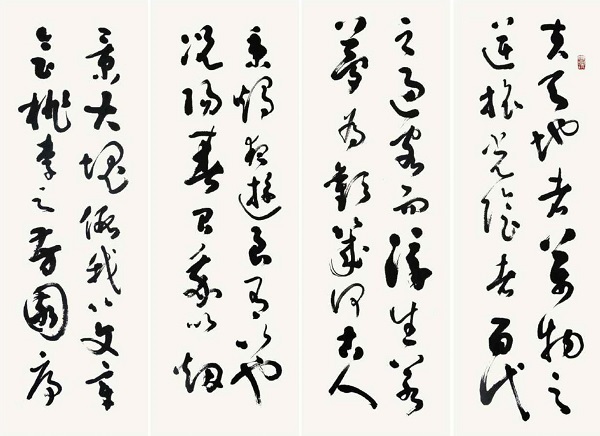 夫天地者萬物之
逆旅光陰者百代
之過客而浮生若
夢為歡幾何古人
秉燭夜遊良有以也
況陽春召我以煙
景大塊假我以文章
會桃李之芳園序